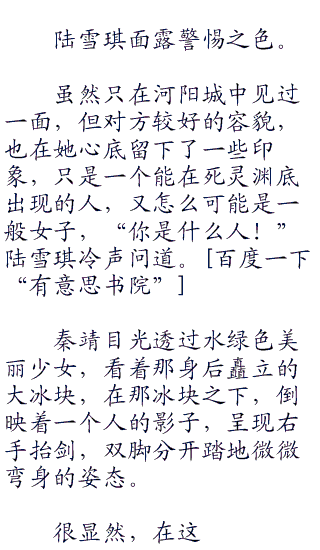 陆雪琪面露警惕之色。
虽然只在河阳城中见过
一面，但对方较好的容貌，
也在她心底留下了一些印
象，只是一个能在死灵渊底
出现的人，又怎么可能是一
般女子，“你是什么人！”
陆雪琪冷声问道。[百度一下
“有意思书院”]
秦靖目光透过水绿色美
丽少女，看着那身后矗立的
大冰块，在那冰块之下，倒
映着一个人的影子，呈现右
手抬剑，双脚分开踏地微微
弯身的姿态。
很显然，在这